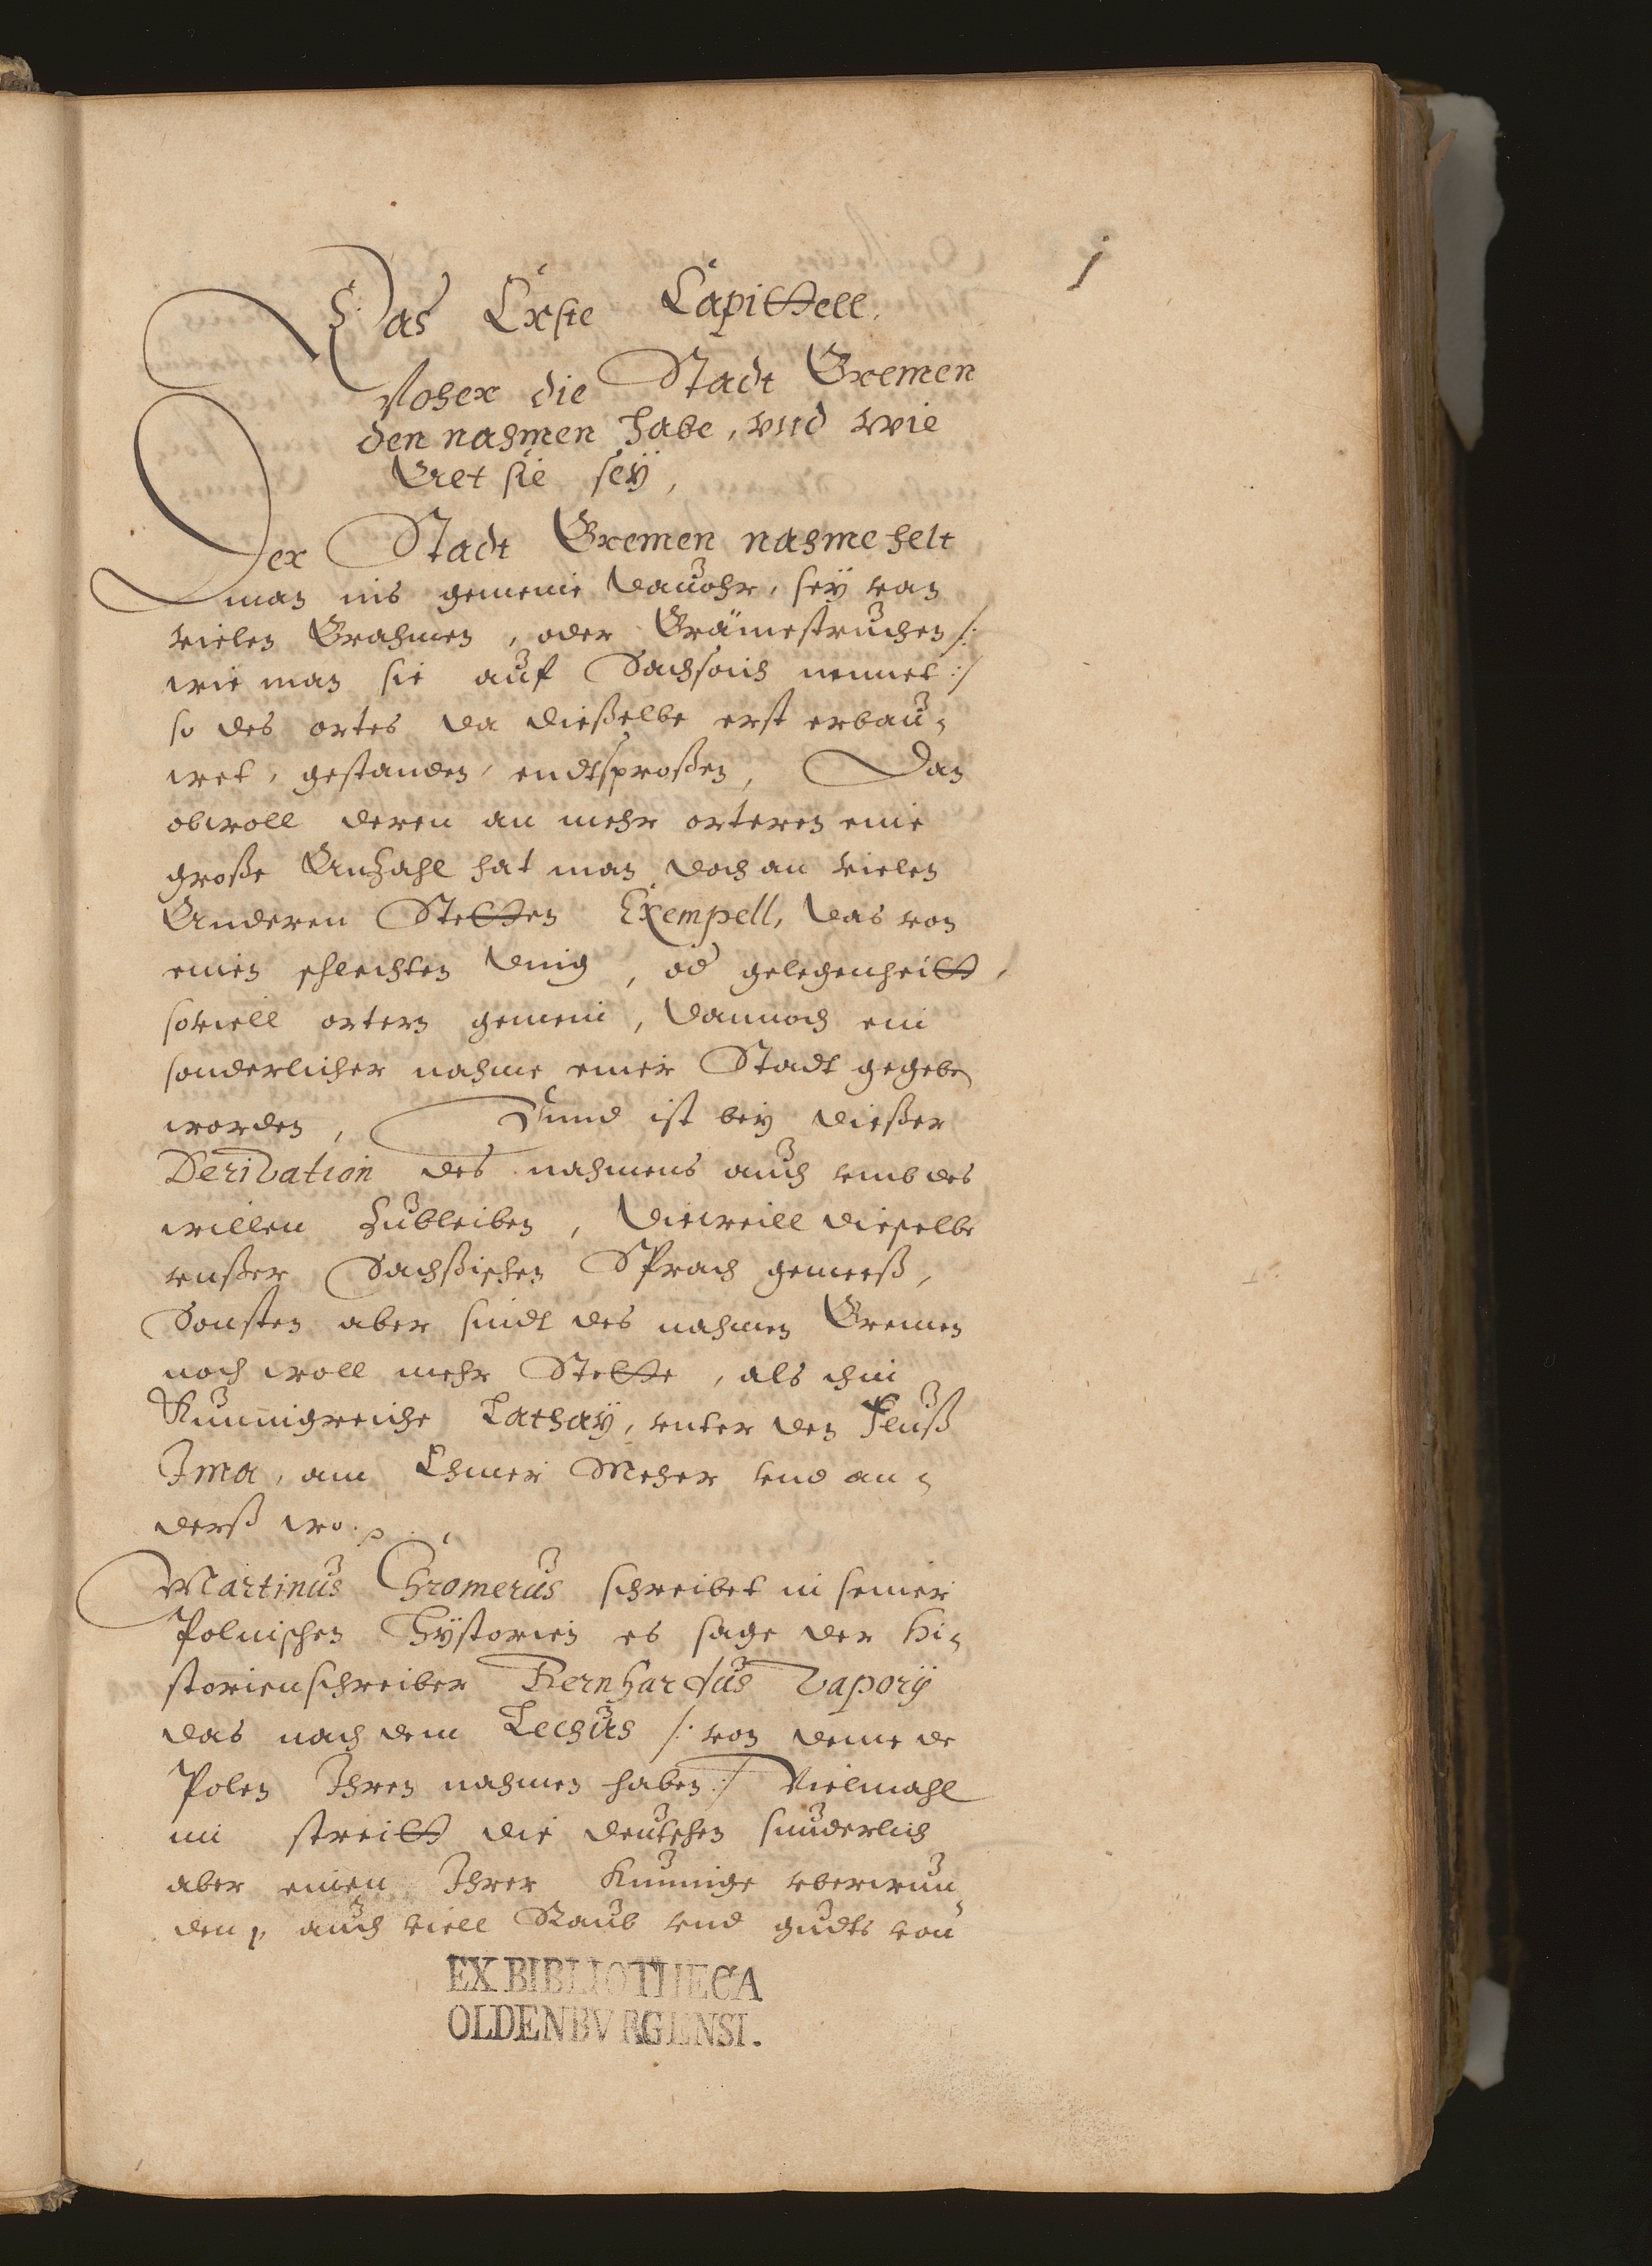 1
Das Erste Capittell.
Woher die Stadt Bremen
den nahmen habe, vnd wie
Alt sie seÿ,
Der Stadt Bremen nahme helt
man ins gemeine dauohr, seÿ van
vielen Brahmen, oder Brämestruchen /:
wie man sie auf Sachsoisch nennet :/
so des ortes da dießelbe erst erbau¬
wet, gestanden, endtsproßen, Dan
obwoll deren an mehr orteren eine
große Anzahl hat man doch an vielen
Anderen Stetten Exempell, das von
einen schlechten ding, od gelegenheitt,
souiell ortern gemein, dannoch ein
sonderlicher nahme einer Stadt gegeben
worden, Vnnd ist beÿ dießer
Derivation des nahmens auch vmb des
willen zubleiben, dieweill dieselbe
vnßer Sachßischen Sprach gemeeß,
Sonsten aber sindt des nahmen Bremen
noch woll mehr Stette, als ihm
Kunnigreiche Cathaÿ, vnter den Fluß
Ima, am Chiner Meher vnd an¬
derß wo.
Martinus Chromerus schreibet in seiner
Polnischen Hÿstorien es sage der Hi¬
storienschreiber Bernhardus Vaporÿ
das nach dem Lechus /: von deme de
Polen Ihren nahmen haben :/ Vielmahl
im streitt die deutschen sunderlich
aber einen Ihrer Kunnige vberwun¬
den, auch viell Raub vnd gudts von
EX BIBLIOTHECA
OLDENBVRGENSI.